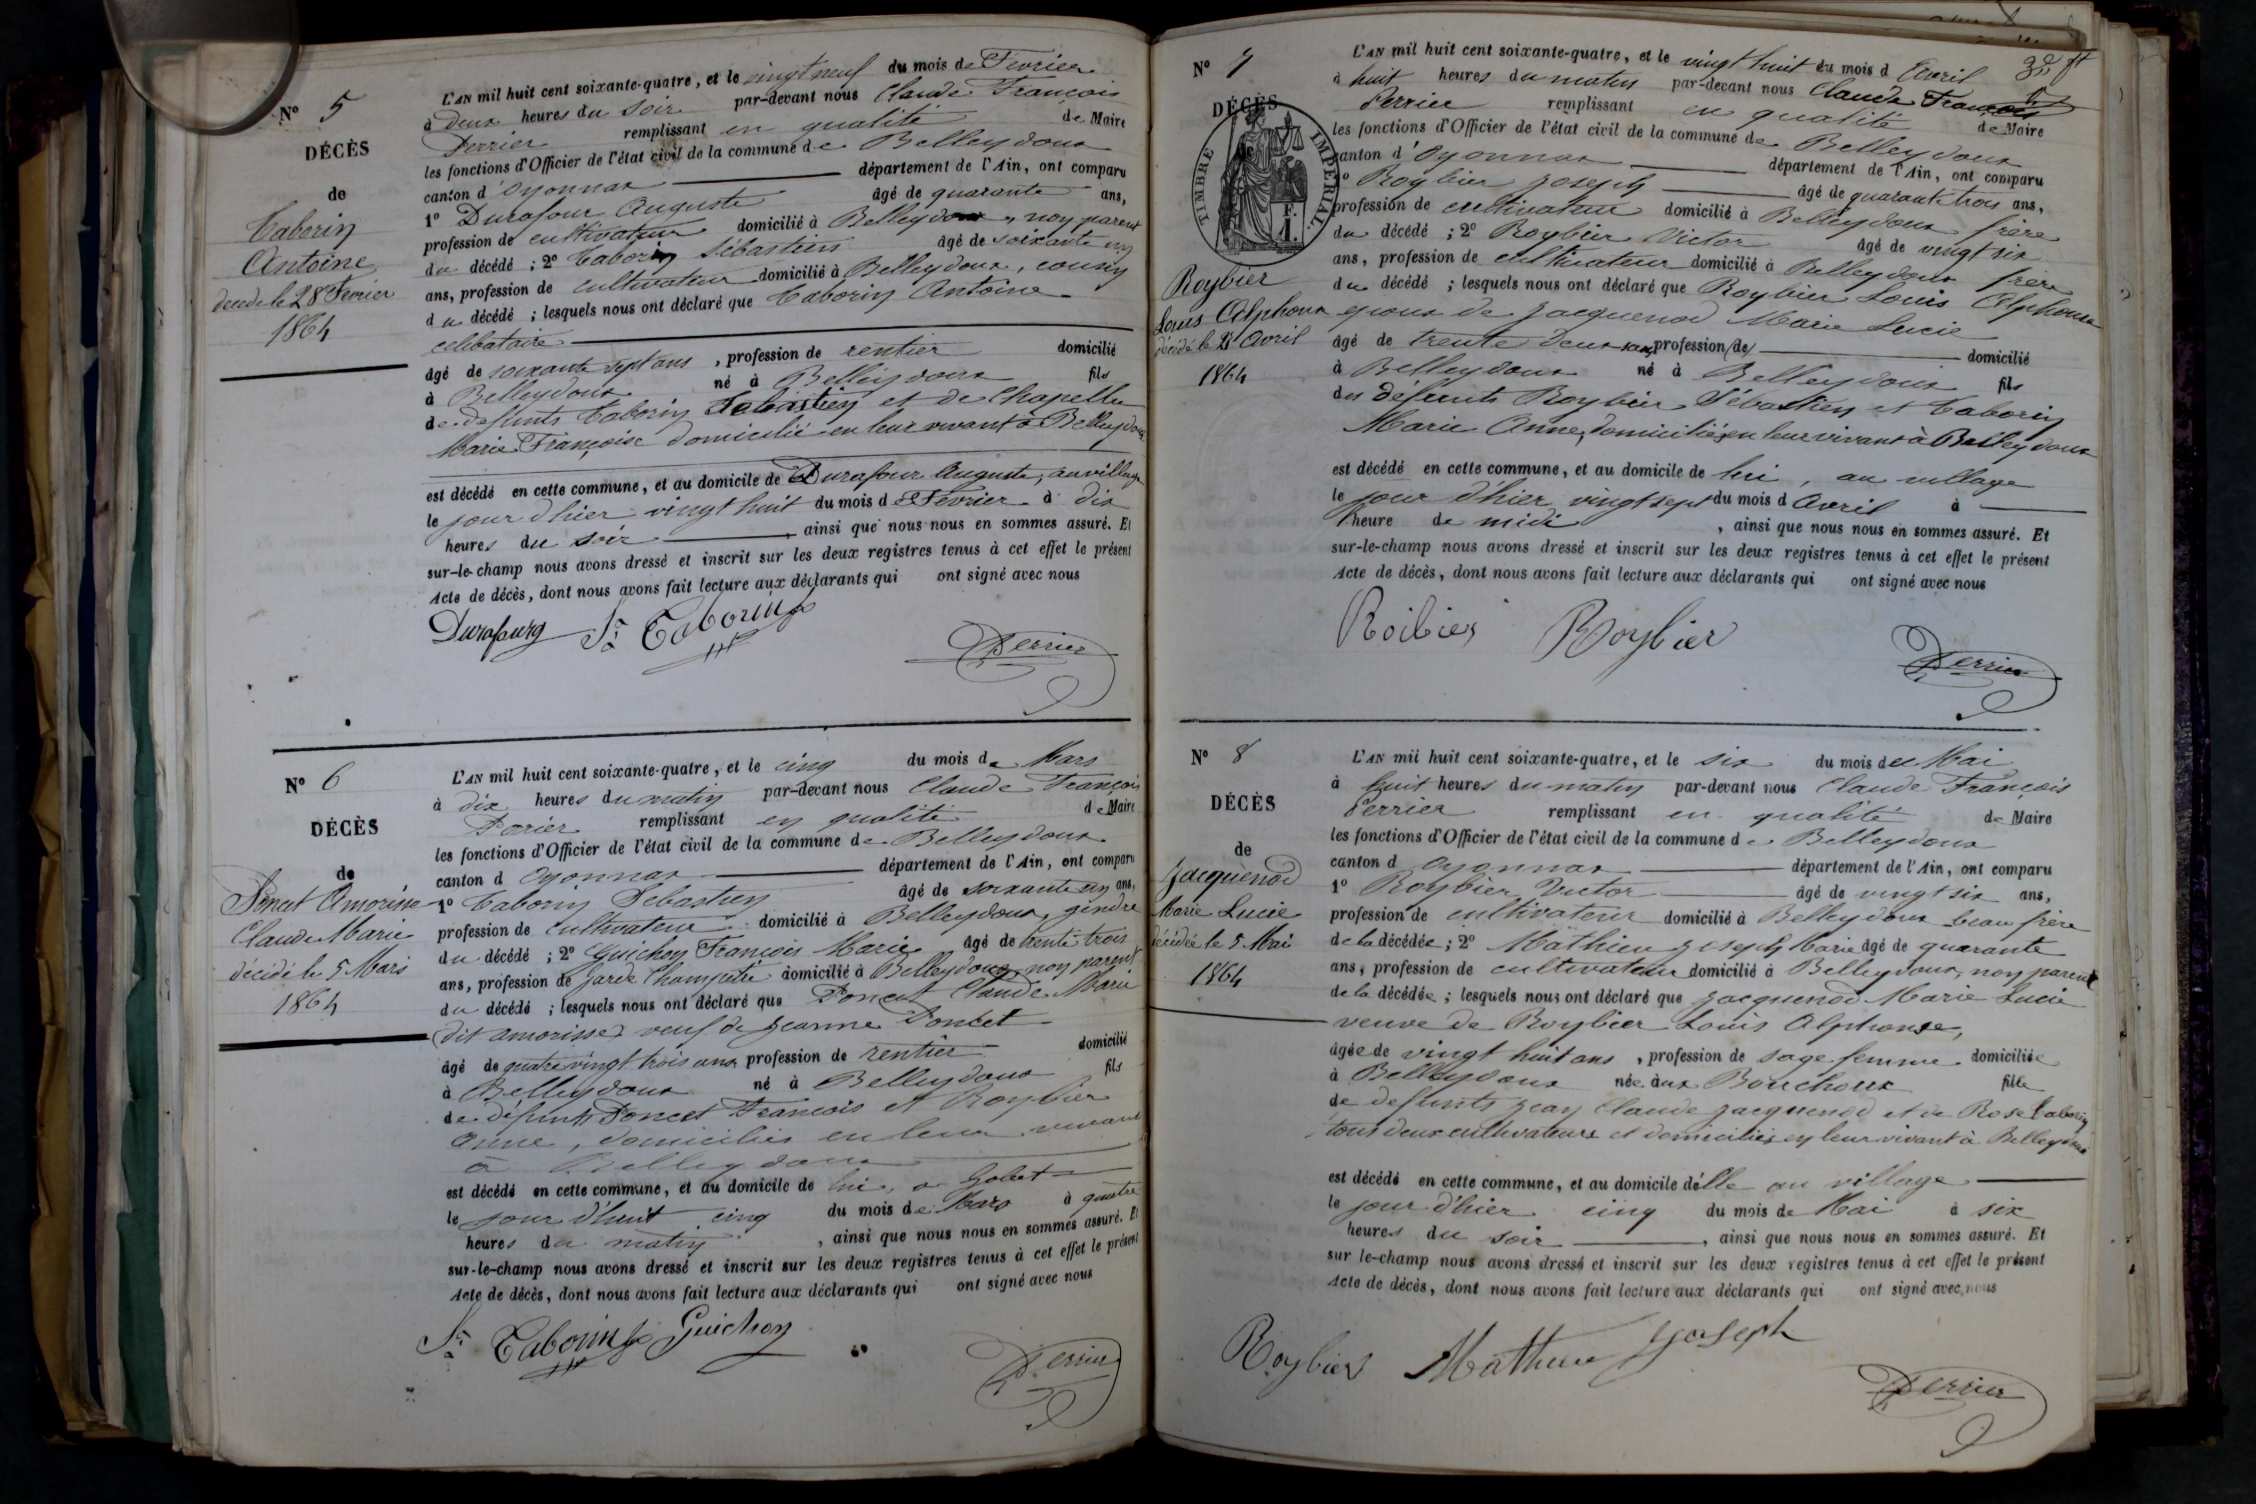 N° 5
DÉCÈS
de
Taborin
Antoine
décédé le 28 Février
1864
L'AN mil huit cent soixante-quatre, et le vingt neuf du mois de Février
à deux heures du soir par-devant nous Claude François
Perrier remplissant en qualité de Maire
les fonctions d'Officier de l'état civil de la commune de Belleydoux
canton d'Oyonnax département de l'Ain, ont comparu
1° Durafour Auguste âgé de quarante ans,
profession de cultivateur domicilié à Belleydoux, non parent
du décédé ; 2° Taborin Sébastien âgé de soixante un
ans, profession de cultivateur domicilié à Belleydoux, cousin
du décédé ; lesquels nous ont déclaré que Taborin Antoine
célibataire
âgé de soixante sept ans, profession de rentier domicilié
à Belleydoux né à Belleydoux fils
de défunts Taborin Sébastien et de Chapelle
Marie Françoise domicilié en leur vivant à Belleydoux
est décédé en cette commune, et au domicile de Durafour Auguste, au village
le jour d'hier vingt huit du mois de Février à dix
heures du soir, ainsi que nous nous en sommes assuré. Et
sur-le-champ nous avons dressé et inscrit sur les deux registres tenus à cet effet le présent
Acte de décès, dont nous avons fait lecture aux déclarants qui ont signé avec nous
Durafourg St Taborin Perrier
N° 6
DÉCÈS
de
Poncet Amorisse
Claude Marie
décédé le 5 Mars
1864
L'AN mil huit cent soixante-quatre, et le cinq du mois de Mars
à dix heures du matin par-devant nous Claude François
Perier remplissant en qualité de Maire
les fonctions d'Officier de l'état civil de la commune de Belleydoux
canton d Oyonnax département de l'Ain, ont comparu
1° Taborin Sebastien âgé de soixante un ans,
profession de cultivateur domicilié à Belleydoux, gendre
du décédé ; 2° Guichon François Marie âgé de trente trois
ans, profession de garde Champêtre domicilié à Belleydoux, non parent
du décédé ; lesquels nous ont déclaré que Poncet Claude Marie
(dit amorisse) veuf de Jeanne Poncet
âgé de quatre vingt trois ans profession de rentier domicilié
à Belleydoux né à Belleydoux fils
de défunts Poncet François et Roybier
Anne, domiciliés en leur vivant
à Belleydoux
est décédé en cette commune, et au domicile de lui, a Gobet
le jour d'huit cinq du mois de Mars à quatre
heures du matin, ainsi que nous nous en sommes assuré. Et
sur-le-champ nous avons dressé et inscrit sur les deux registres tenus à cet effet le présent
Acte de décès, dont nous avons fait lecture aux déclarants qui ont signé avec nous
St Taborin Guichon Perrier
N° 7
DÉCÈS
de
TIMBRE IMPÉRIAL
F.
1.
Roybier
Louis Alphonse
décédé le 27 Avril
1864
L'AN mil huit cent soixante-quatre, et le vingt huit du mois d Avril
à huit heures du matin par-devant nous Claude François
Perrier remplissant en qualité de Maire
les fonctions d'Officier de l'état civil de la commune de Belleydoux
canton d'Oyonnax département de l'Ain, ont comparu
1° Roybier Joseph âgé de quarante trois ans,
profession de cultivateur domicilié à Belleydoux frère
du décédé ; 2° Roybier Victor âgé de vingt six
ans, profession de cultivateur domicilié à Belleydoux frère
du décédé ; lesquels nous ont déclaré que Roybier Louis Alphonse
époux de Jacquenod Marie Lucie
âgé de trente deux ans, profession de domicilié
à Belleydoux né à Belleydoux fils
des défunts Roybier Sébastien et Taborin
Marie Anne, domiciliés en leur vivant à Belleydoux
est décédé en cette commune, et au domicile de lui, au village
le jour d'hier vingt sept du mois d Avril à
l'heure de midi, ainsi que nous nous en sommes assuré. Et
sur-le-champ nous avons dressé et inscrit sur les deux registres tenus à cet effet le présent
Acte de décès, dont nous avons fait lecture aux déclarants qui ont signé avec nous
Roibier Roybier Perrier
N° 8
DÉCÈS
de
Jacquenod
Marie Lucie
décédée le 5 Mai
1864
L'AN mil huit cent soixante-quatre, et le six du mois de Mai
à huit heures du matin par-devant nous Claude François
Perrier remplissant en qualité de Maire
les fonctions d'Officier de l'état civil de la commune de Belleydoux
canton d Oyonnax département de l'Ain, ont comparu
1° Roybier Victor âgé de vingt six ans,
profession de cultivateur domicilié à Belleydoux beau frère
de la décédée ; 2° Mathieu Joseph Marie âgé de quarante
ans, profession de cultivateur domicilié à Belleydoux, non parent
de la décédée ; lesquels nous ont déclaré que Jacquenod Marie Lucie
veuve de Roybier Louis Alphonse,
âgée de vingt huit ans, profession de sage femme domiciliée
à Belleydoux née aux Bouchoux fille
de défunts Jean Claude Jacquenod et de Rose Taborin
tous deux cultivateurs et domiciliés en leur vivant à Belleydoux
est décédé en cette commune, et au domicile d'elle au village
le jour d'hier cinq du mois de Mai à six
heures du soir, ainsi que nous nous en sommes assuré. Et
sur le-champ nous avons dressé et inscrit sur les deux registres tenus à cet effet le présent
Acte de décès, dont nous avons fait lecture aux déclarants qui ont signé avec nous
Roybier Mathieu Joseph Perrier